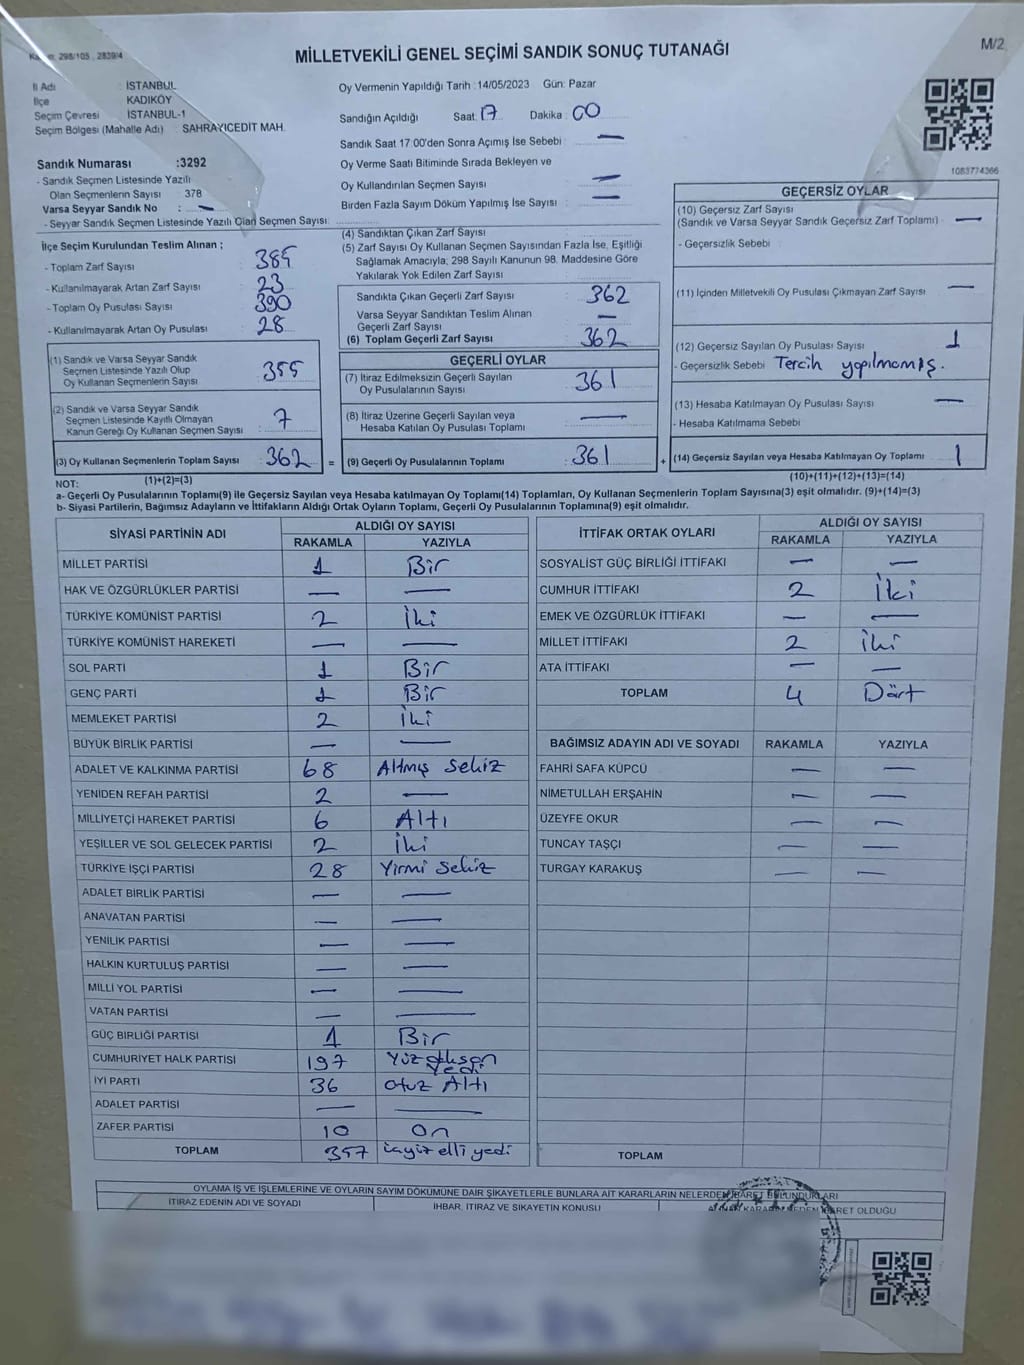 Kanun: 298/105 , 2839/4
MİLLETVEKİLİ GENEL SEÇİMİ SANDIK SONUÇ TUTANAĞI
M/2
İl Adı : İSTANBUL
İlçe KADIKÖY
Seçim Çevresi İSTANBUL-1
Seçim Bölgesi (Mahalle Adı) : SAHRAYICEDİT MAH.
Oy Vermenin Yapıldığı Tarih :14/05/2023 Gün: Pazar
Sandığın Açıldığı Saat: 17 Dakika : 00
Sandık Saat 17:00'den Sonra Açımış İse Sebebi : —
Oy Verme Saati Bitiminde Sırada Bekleyen ve
Oy Kullandırılan Seçmen Sayısı : —
Birden Fazla Sayım Döküm Yapılmış İse Sayısı : —
1083774366
Sandık Numarası :3292
- Sandık Seçmen Listesinde Yazılı
Olan Seçmenlerin Sayısı : 378
Varsa Seyyar Sandık No : —
- Seyyar Sandık Seçmen Listesinde Yazılı Olan Seçmen Sayısı:
İlçe Seçim Kurulundan Teslim Alınan ;
- Toplam Zarf Sayısı : 385
- Kullanılmayarak Artan Zarf Sayısı : 23
- Toplam Oy Pusulası Sayısı : 390
- Kullanılmayarak Artan Oy Pusulası : 28
(1) Sandık ve Varsa Seyyar Sandık
Seçmen Listesinde Yazılı Olup
Oy Kullanan Seçmenlerin Sayısı : 355
(2) Sandık ve Varsa Seyyar Sandık
Seçmen Listesinde Kayıtlı Olmayan
Kanun Gereği Oy Kullanan Seçmen Sayısı : 7
(3) Oy Kullanan Seçmenlerin Toplam Sayısı : 362 =
(1)+(2)=(3)
(4) Sandıktan Çıkan Zarf Sayısı :
(5) Zarf Sayısı Oy Kullanan Seçmen Sayısından Fazla İse, Eşitliği
Sağlamak Amacıyla; 298 Sayılı Kanunun 98. Maddesine Göre
Yakılarak Yok Edilen Zarf Sayısı :
Sandıkta Çıkan Geçerli Zarf Sayısı : 362
Varsa Seyyar Sandıktan Teslim Alınan
Geçerli Zarf Sayısı : —
(6) Toplam Geçerli Zarf Sayısı : 362
GEÇERLİ OYLAR
(7) İtiraz Edilmeksizin Geçerli Sayılan
Oy Pusulalarının Sayısı : 361
(8) İtiraz Üzerine Geçerli Sayılan veya
Hesaba Katılan Oy Pusulası Toplamı : —
(9) Geçerli Oy Pusulalarının Toplamı : 361 +
GEÇERSİZ OYLAR
(10) Geçersiz Zarf Sayısı
(Sandık ve Varsa Seyyar Sandık Geçersiz Zarf Toplamı) : —
- Geçersizlik Sebebi :
(11) İçinden Milletvekili Oy Pusulası Çıkmayan Zarf Sayısı : —
(12) Geçersiz Sayılan Oy Pusulası Sayısı : 1
- Geçersizlik Sebebi : Tercih yapılmamış.
(13) Hesaba Katılmayan Oy Pusulası Sayısı : —
- Hesaba Katılmama Sebebi :
(14) Geçersiz Sayılan veya Hesaba Katılmayan Oy Toplamı : 1
(10)+(11)+(12)+(13)=(14)
NOT:
a- Geçerli Oy Pusulalarının Toplamı(9) ile Geçersiz Sayılan veya Hesaba katılmayan Oy Toplamı(14) Toplamları, Oy Kullanan Seçmenlerin Toplam Sayısına(3) eşit olmalıdır. (9)+(14)=(3)
b- Siyasi Partilerin, Bağımsız Adayların ve İttifakların Aldığı Ortak Oyların Toplamı, Geçerli Oy Pusulalarının Toplamına(9) eşit olmalıdır.
SİYASİ PARTİNİN ADI ALDIĞI OY SAYISI
RAKAMLA YAZIYLA
MİLLET PARTİSİ 1 Bir
HAK VE ÖZGÜRLÜKLER PARTİSİ — —
TÜRKİYE KOMÜNİST PARTİSİ 2 İki
TÜRKİYE KOMÜNİST HAREKETİ — —
SOL PARTİ 1 Bir
GENÇ PARTİ 1 Bir
MEMLEKET PARTİSİ 2 İki
BÜYÜK BİRLİK PARTİSİ — —
ADALET VE KALKINMA PARTİSİ 68 Altmış Sekiz
YENİDEN REFAH PARTİSİ 2 —
MİLLİYETÇİ HAREKET PARTİSİ 6 Altı
YEŞİLLER VE SOL GELECEK PARTİSİ 2 İki
TÜRKİYE İŞÇİ PARTİSİ 28 Yirmi Sekiz
ADALET BİRLİK PARTİSİ — —
ANAVATAN PARTİSİ — —
YENİLİK PARTİSİ — —
HALKIN KURTULUŞ PARTİSİ — —
MİLLİ YOL PARTİSİ — —
VATAN PARTİSİ — —
GÜÇ BİRLİĞİ PARTİSİ 1 Bir
CUMHURİYET HALK PARTİSİ 197 Yüz
Yedi
İYİ PARTİ 36 Otuz Altı
ADALET PARTİSİ — —
ZAFER PARTİSİ 10 On
TOPLAM 357 elli yedi
İTTİFAK ORTAK OYLARI ALDIĞI OY SAYISI
RAKAMLA YAZIYLA
SOSYALİST GÜÇ BİRLİĞİ İTTİFAKI — —
CUMHUR İTTİFAKI 2 İki
EMEK VE ÖZGÜRLÜK İTTİFAKI — —
MİLLET İTTİFAKI 2 İki
ATA İTTİFAKI — —
TOPLAM 4 Dört
BAĞIMSIZ ADAYIN ADI VE SOYADI RAKAMLA YAZIYLA
FAHRİ SAFA KÜPCÜ — —
NİMETULLAH ERŞAHİN — —
ÜZEYFE OKUR — —
TUNCAY TAŞÇI — —
TURGAY KARAKUŞ — —
TOPLAM
OYLAMA İŞ VE İŞLEMLERİNE VE OYLARIN SAYIM DÖKÜMÜNE DAİR ŞİKAYETLERLE BUNLARA AİT KARARLARIN NELERDEN İBARET BULUNDUKLARI
İTİRAZ EDENİN ADI VE SOYADI İHBAR, İTİRAZ VE ŞİKAYETİN KONUSU